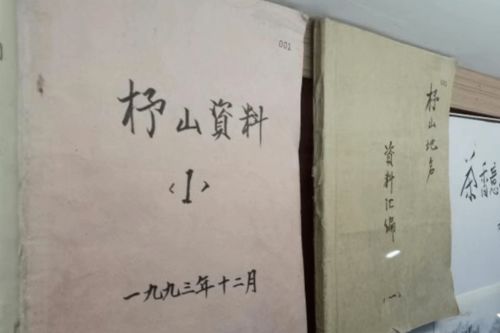 001
杼山資料
〈1〉
一九九三年十二月
杼山地名
資料汇编
（一）
茶香意